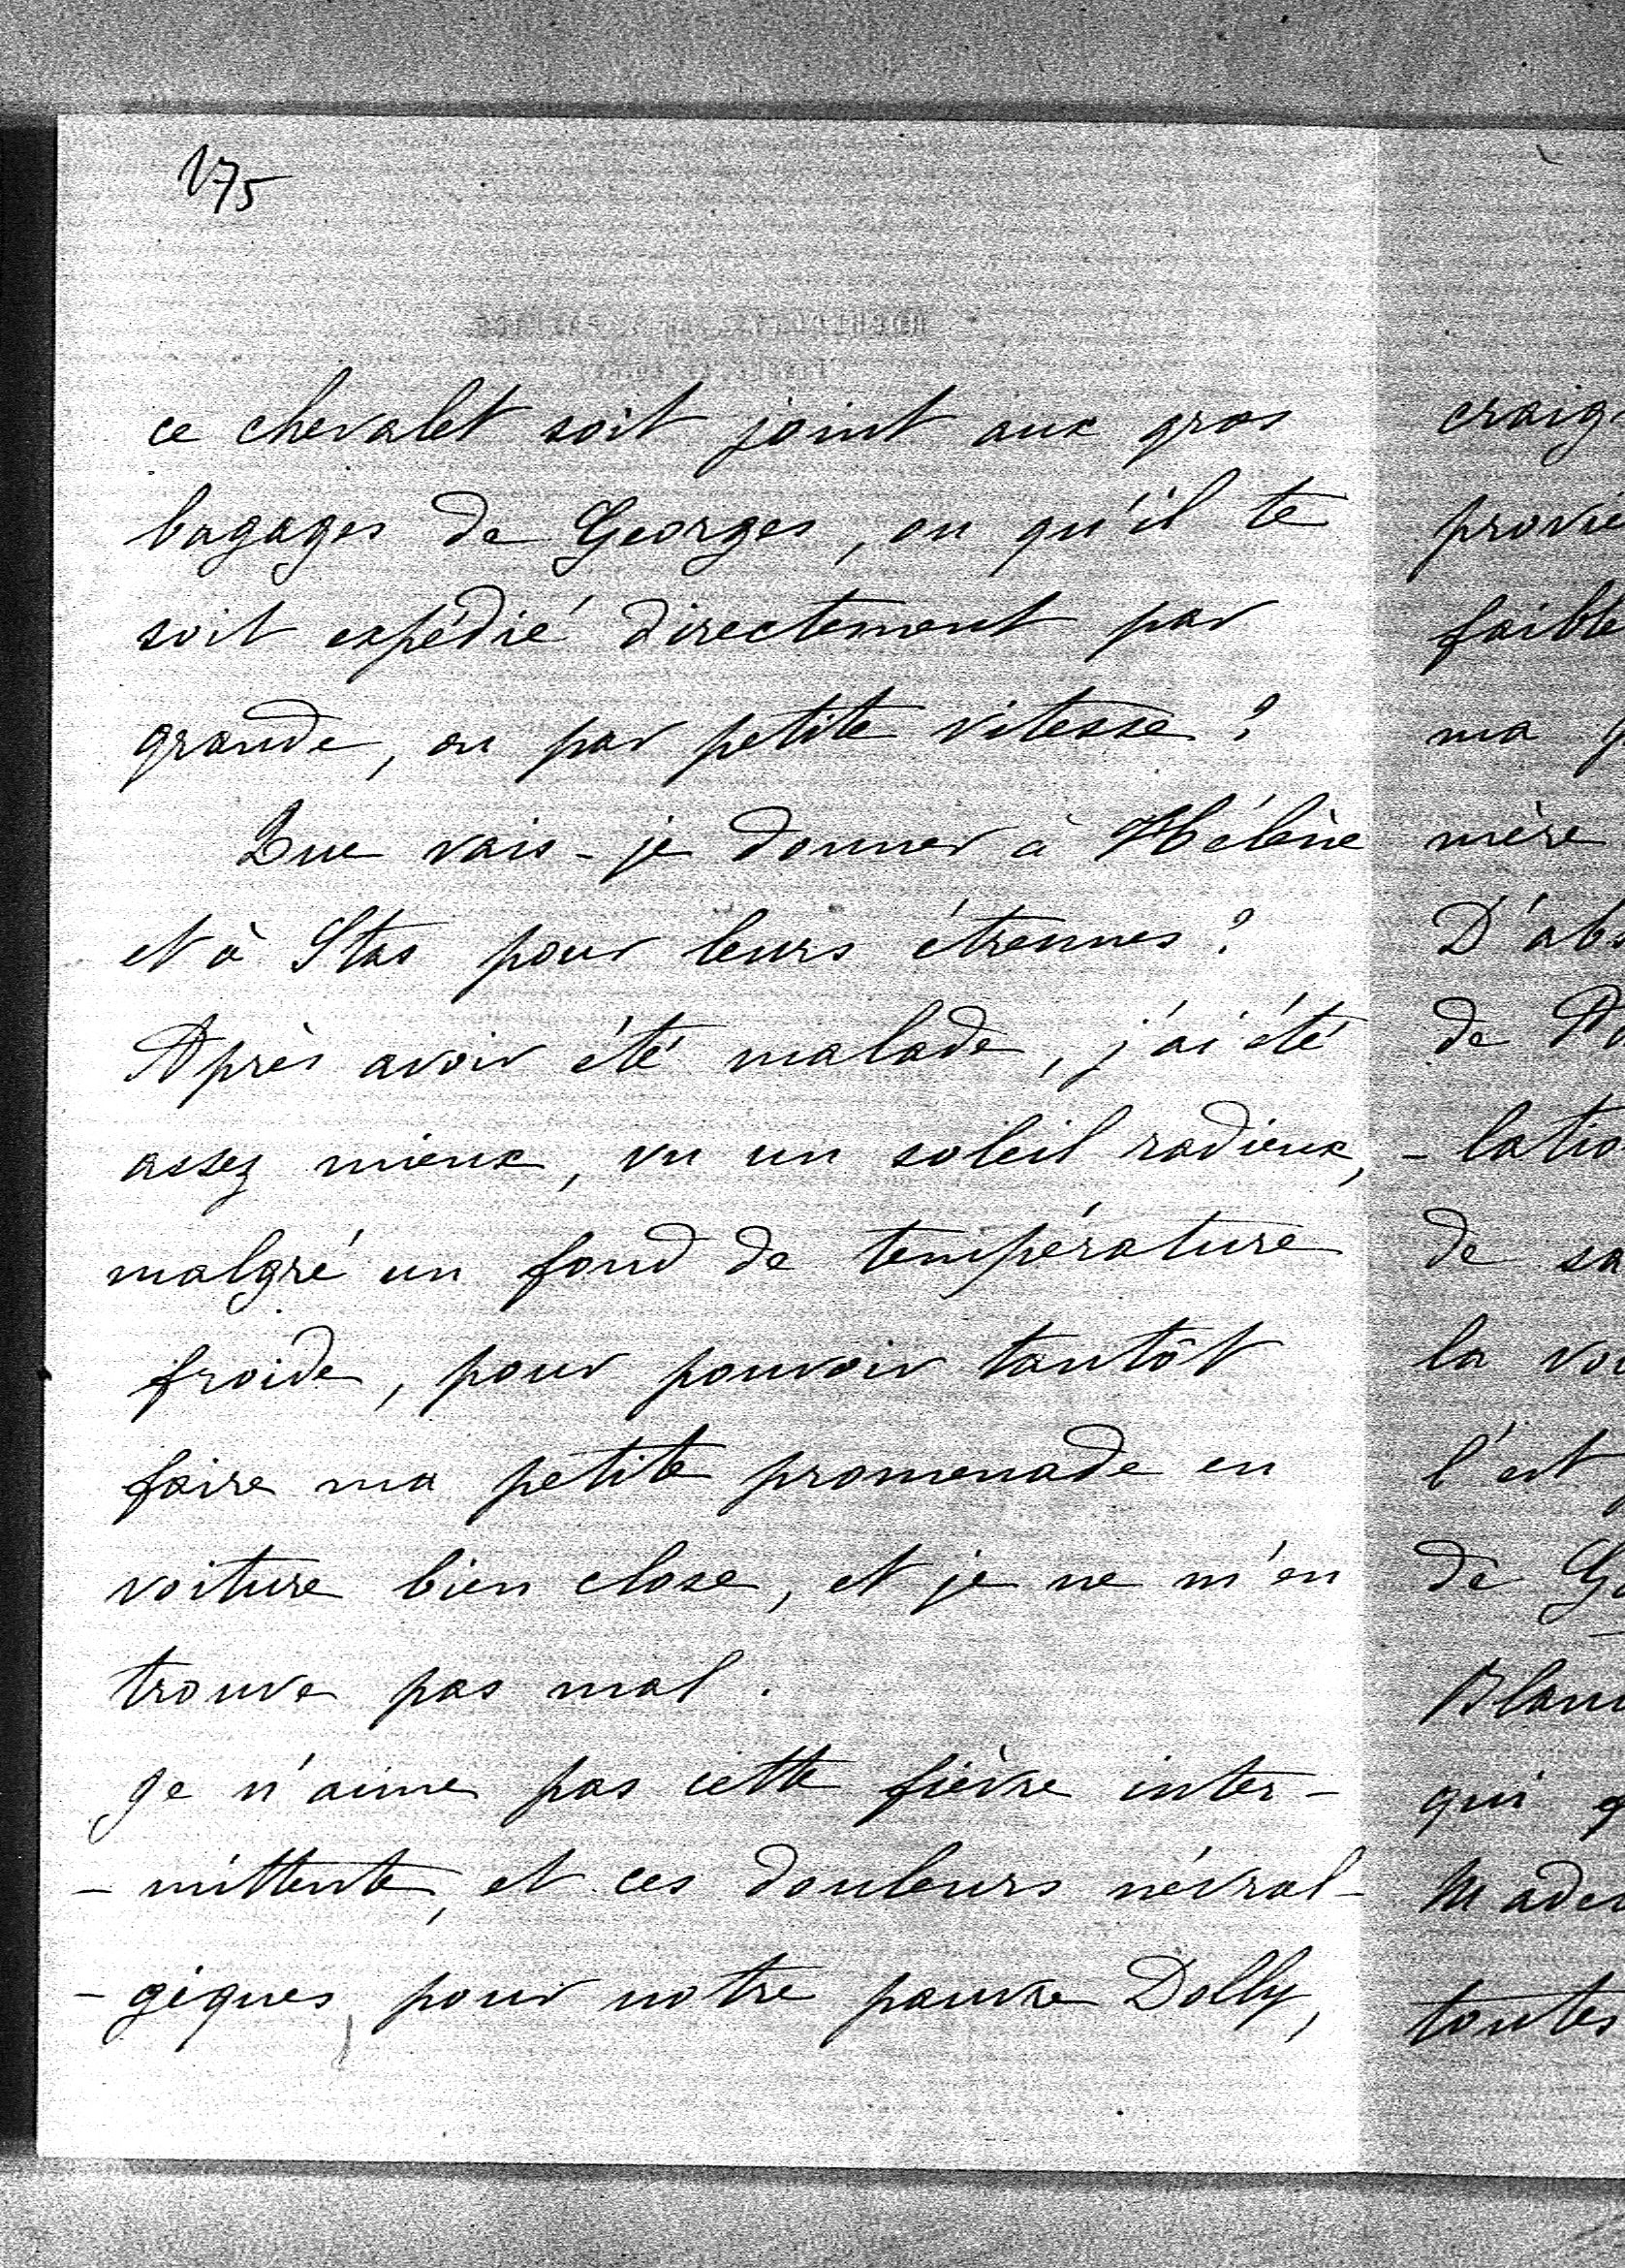 175
ce chevalet soit joint aux gros
bagages de Georges, ou qu'il te
soit expédié directement par
grande, ou par petite vitesse ?
Que vais-je donner à Hélène
et à Stas pour leurs étrennes ?
Après avoir été malade, j'ai été
assez mieux, vu un soleil radieux,
malgré un fond de température
froide, pour pouvoir tantôt
faire ma petite promenade en
voiture bien close, et je ne m'en
trouve pas mal.
Je n'aime pas cette fièvre inter-
-mittente, et ces douleurs névral-
-giques, pour notre pauvre Dolly,
à
craig
provie
faible
ma
mère
D'abs
de
-latio
de sa
la voi
l'est
de
Blan
qui
Made
toutes